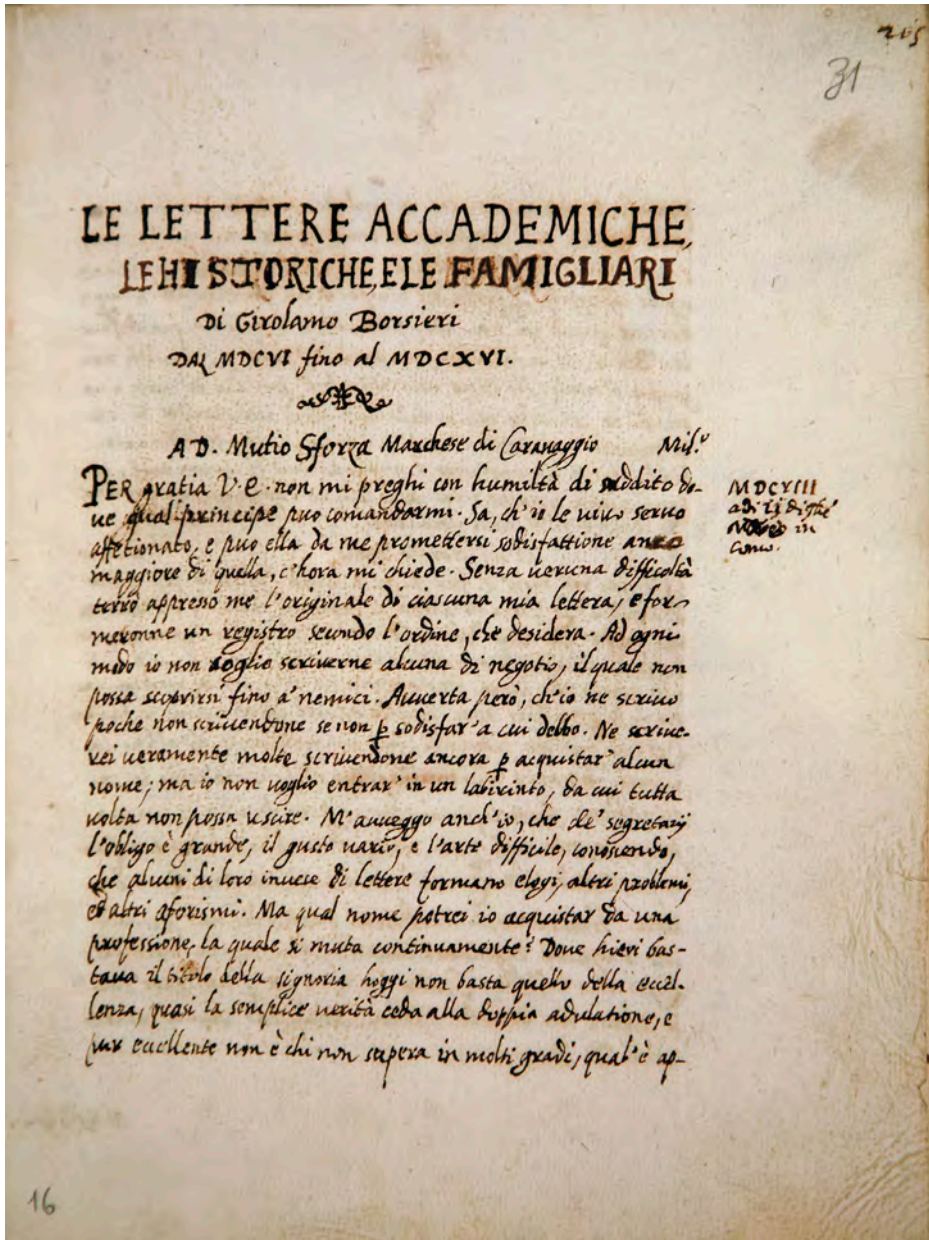 205
31
LE LETTERE ACCADEMICHE,
LE HISTORICHE, E LE FAMIGLIARI
Di Girolamo Borsieri
DAL MDCVI fino al MDCXVI.
A D. Mutio Sforza Marchese di Caravaggio Mil.º
PER gratia V.E. non mi preghi con humiltà di suddito do-
ue qual principe può comandarmi. Sa, ch'io le uiuo seruo
affetionato, e può ella da me promettersi sodisfattione anco
maggiore di quella, c'hora mi chiede. Senza ueruna difficoltà
terrò appresso me l'originale di ciascuna mia lettera, e for-
meronne un registro secondo l'ordine, che desidera. Ad ogni
modo io non uoglio scriuerne alcuna di negotio, il quale non
possa scoprirsi fino a' nemici. Auuerta però, ch'io ne scriuo
poche non scriuendone se non p sodisfar' a cui debbo. Ne scriue-
rei ueramente molte scriuendone ancora p acquistar' alcun
nome; ma io non uoglio entrar' in un labirinto, da cui tutta
uolta non possa uscire. M'auueggo anch'io, che de' segretarij
l'obligo è grande, il gusto uario, e l'arte difficile, conoscendo,
che alcuni di loro inuece di lettere formano elogi, altri problemi,
ed altri aforismi. Ma qual nome potrei io acquistar da una
professione, la quale si muta continuamente? Doue hieri bas-
taua il titolo della signoria hoggi non basta quello della eccel-
lenza, quasi la semplice uerità ceda alla doppia adulatione, e
pur eccellente non è chi non supera in molti gradi, qual'è ap-
MDCVIII
adi
in
Como.
16